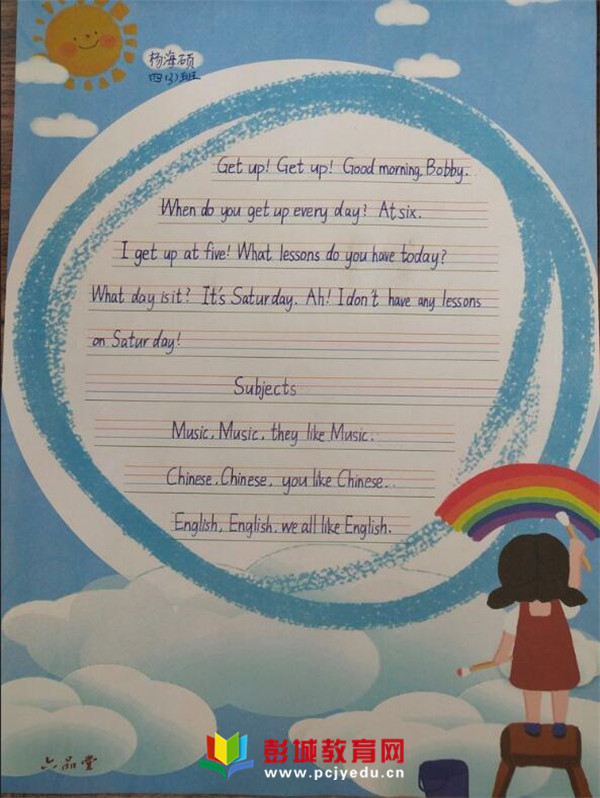 杨海硕
四(3)班
Get up! Get up! Good morning, Bobby.
When do you get up every day? At six.
I get up at five! What lessons do you have today?
What day is it? It's Saturday. Ah! I don't have any lessons
on Saturday!
Subjects
Music, Music, they like Music.
Chinese, Chinese, you like Chinese.
English, English, we all like English.
六品堂
彭城教育网
www.pcjyedu.cn